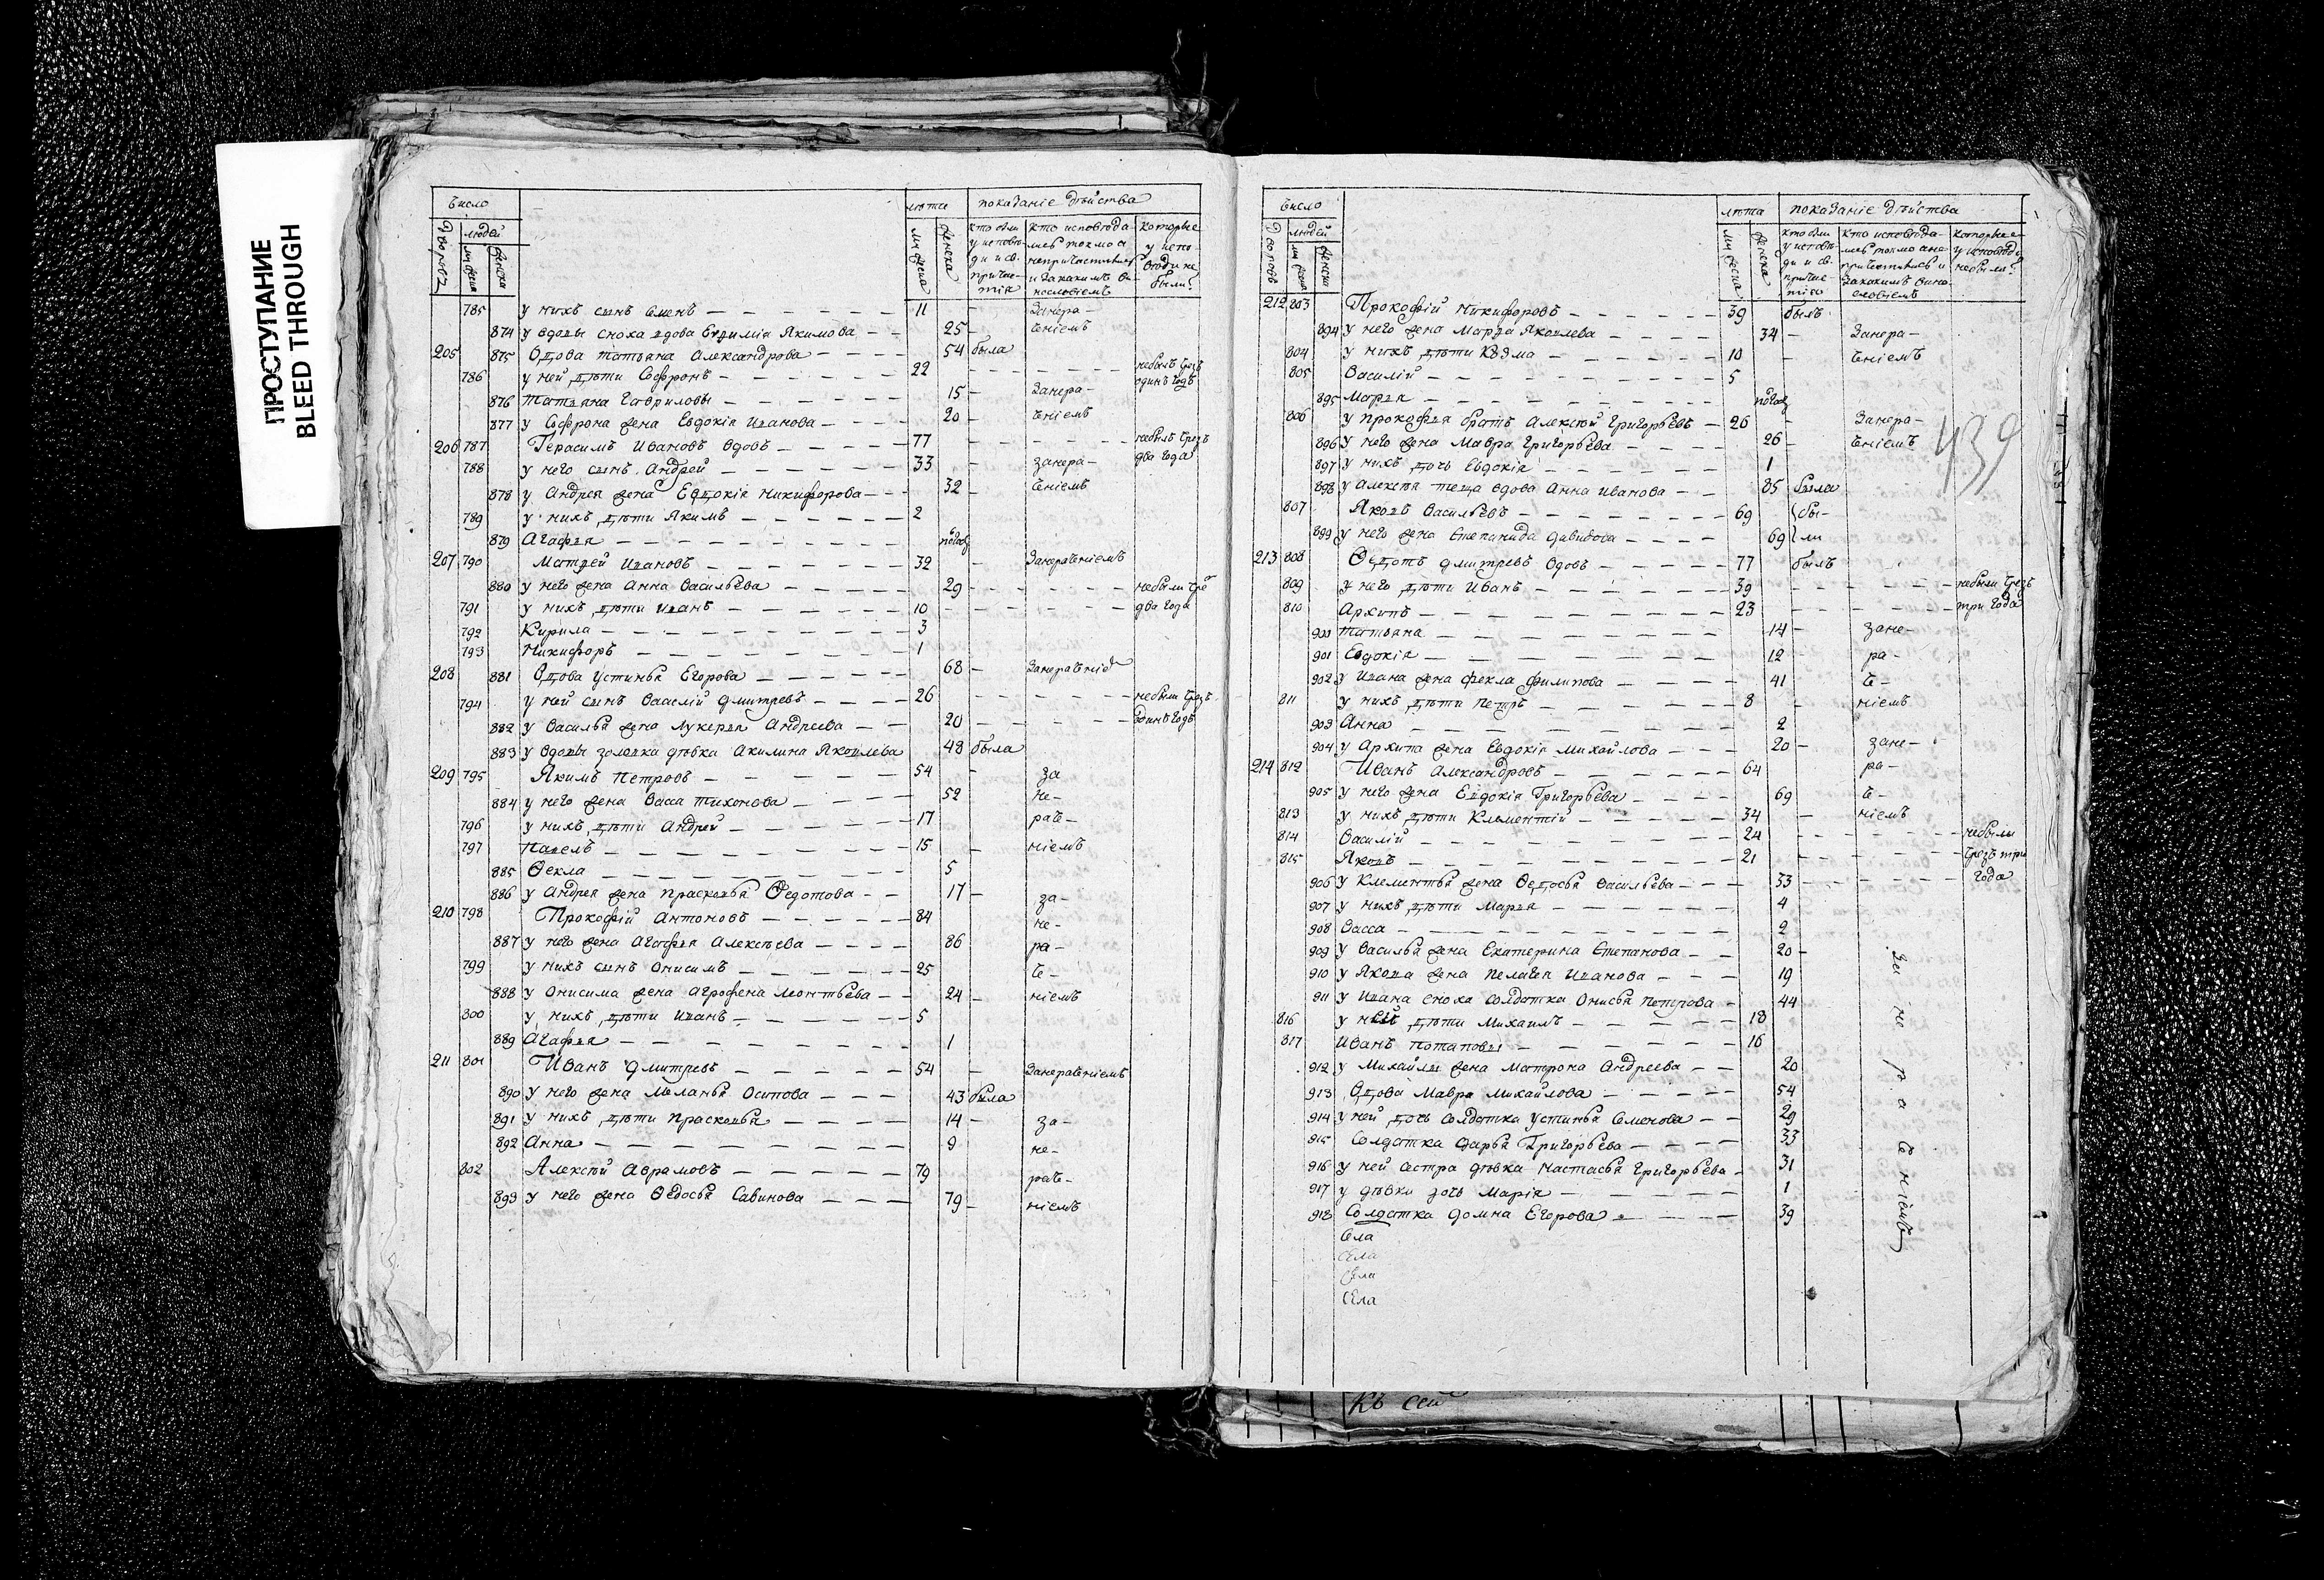 ПРОСТУПАНИЕ
BLEED THROUGH
число
людей
лѣта
показаніе дѣйства
дворовъ
мужеска
женска
мужеска
женска
кто были у исповѣди и св. причастія
кто исповѣдались токмо а непричастились и закакимъ винословіемъ
которые у исповѣди не были
785 у нихъ сынъ Семенъ 11 Занера-
874 у вдовы сноха вдова Евѳимія Якимова 25 ченіемъ
205 875 Вдова Татьяна Александрова 54 была
786 у ней дѣти Софронъ 22 небылъ чрезъ одинъ годъ
876 Татьяна Гавриловы 15 Занера-
877 у Софрона жена Евдокія Иванова 20 ченіемъ
206 787 Герасимъ Ивановъ вдовъ 77 небылъ чрезъ два года
788 у него сынъ Андрей 33 занера-
878 у Андрея жена Евдокія Никифорова 32 ченіемъ
789 у нихъ дѣти Якимъ 2
879 Агафья полгод
207 790 Матвей Ивановъ 32 Занераченіемъ
880 у него жена Анна Васильева 29 небыли чре
791 у нихъ дѣти Иванъ 10 два года
792 Кирила 3
793 Никифоръ 1
208 881 Вдова Устинья Егорова 68 Занераченіе
794 у ней сынъ Василій Дмитревъ 26 небыли чрезъ
882 у Василья жена Лукерья Андреева 20 одинъ годъ
883 у вдовы золовка дѣвка Акилина Яковлева 48 была
209 795 Якимъ Петровъ 54 за
884 у него жена Васса Тихонова 52 не-
796 у нихъ дѣти Андрей 17 раче-
797 Павелъ 15 ніемъ
885 Ѳекла 5
886 у Андрея жена Прасковья Ѳедотова 17 за-
210 798 Прокофій Антоновъ 84 не-
887 у него жена Агафья Алексѣева 86 ра-
799 у нихъ сынъ Онисимъ 25 че-
888 у Онисима жена Агрофена Леонтьева 24 ніемъ
800 у нихъ дѣти Иванъ 5
889 Агафья 1
211 801 Иванъ Дмитревъ 54 Занераченіемъ
890 у него жена Меланья Осипова 43 была
891 у нихъ дѣти Прасковья 14 за-
892 Анна 9 не-
802 Алексѣй Аврамовъ 79 раче-
893 у него жена Ѳедосья Савинова 79 ніемъ
число
людей
лѣта
показаніе дѣйства
дворовъ
мужеска
женска
мужеска
женска
кто были у исповѣди и св. причастія
кто исповѣдались токмо а непричастились и закакимъ винословіемъ
которые у исповѣди небыли
439
212 803 Прокофій Никифоровъ 39 былъ
894 у него жена Марѳа Яковлева 34 Занера-
804 у нихъ дѣти Козма 10 ченіемъ
805 Василій 5
895 Марья полгод
806 у Прокофья братъ Алексѣй Григорьевъ 26 Занера-
896 у него жена Мавра Григорьева 26 ченіемъ
897 у нихъ дочь Евдокія 1
898 у Алексѣя теща вдова Анна Иванова 85 была
807 Яковъ Васильевъ 69 бы-
899 у него жена Степанида Давидова 69 ли
213 808 Ѳедотъ Дмитревъ вдовъ 77 былъ
809 у него дѣти Иванъ 39 небыли чрезъ
810 Архипъ 23 три года
900 Татьяна 14 зане-
901 Евдокія 12 ра-
902 у Ивана жена Фекла Филипова 41 че-
811 у нихъ дѣти Петръ 8 ніемъ
903 Анна 2
904 у Архипа жена Евдокія Михайлова 20 зане-
214 812 Иванъ Александровъ 64 ра-
905 у него жена Евдокія Григорьева 69 че-
813 у нихъ дѣти Клементій 34 ніемъ
814 Василій 24 небыли
815 Яковъ 21 чрезъ три
906 у Клементья жена Ѳедосья Васильева 33 года
907 у нихъ дѣти Марья 4
908 Васса 2
909 у Василья жена Екатерина Степанова 20
910 у Якова жена Пелагея Иванова 19
911 у Ивана сноха солдатка Онисья Петрова 44
816 у ней дѣти Михаилъ 18
817 Иванъ Потаповы 16
912 у Михайлы жена Матрона Андреева 20
913 Вдова Мавра Михайлова 54
914 у ней дочь солдатка Устинья Семенова 29
915 Солдатка Дарья Григорьева 33
916 у ней сестра дѣвка Настасья Григорьева 31
917 у дѣвки дочь Марія 1
918 Солдатка Домна Егорова 39
за не ра ченіемъ
Села
Села
Села
Села
Къ сей